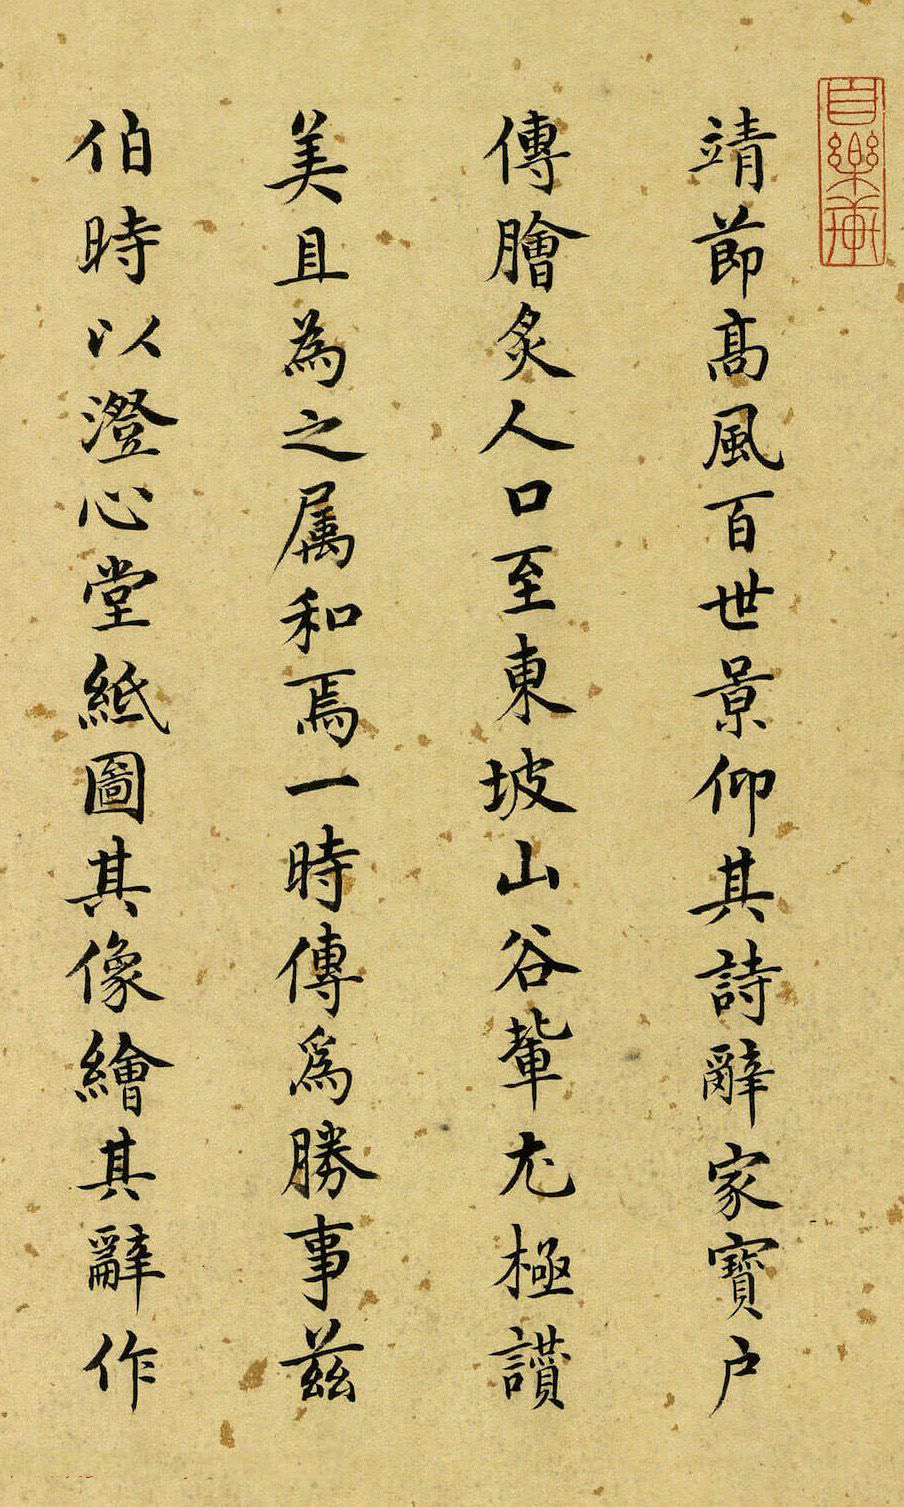 靖節高風百世景仰其詩辭家寶户
傳膾炙人口至東坡山谷輩尤極讚
美且為之属和焉一時傳爲勝事茲
伯時以澄心堂紙圖其像繪其辭作